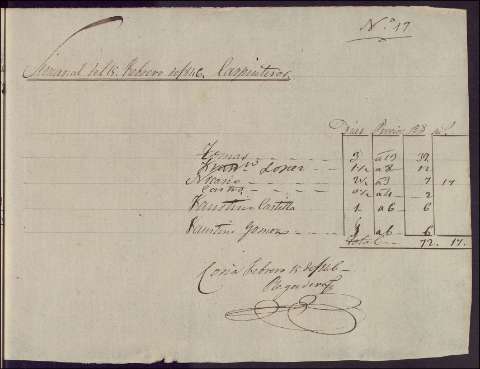 N.º 17
Semanal del 15 Febrero de 1846. Carpinteros.
Dias Precio R.s m.s
Tomas 3 a 13 39
Fran.co Lopez 1 1/2 a 8 12
2 1/2 a 3 7 17
Castro 0 1/2 a 4 2
Faustino Castilla 1 a 6 6
Faustino Gomez 1 a 6 6
Total 72. 17.
Coria Febrero 15 de 1846